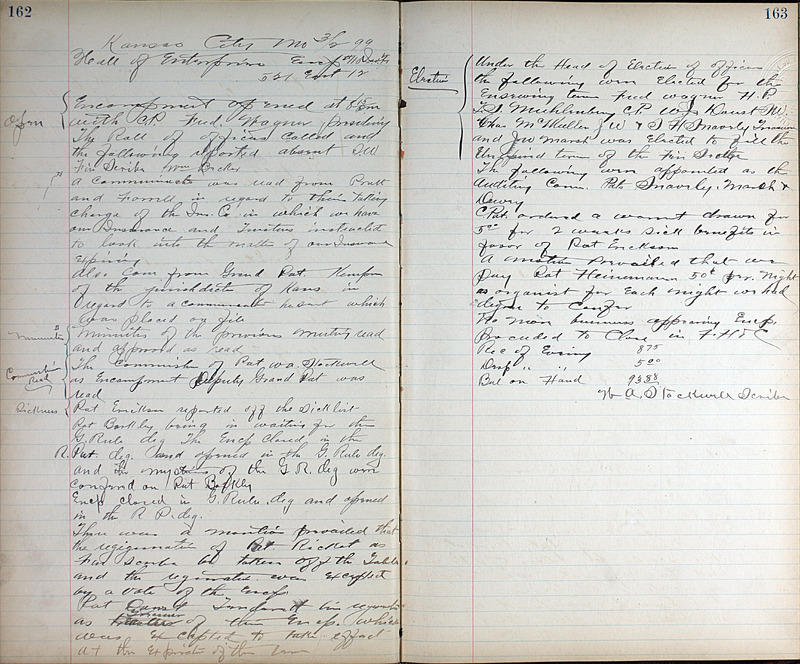 162
Kansas City Mo 3/2 99
Hall of Enterprise Encp
521 East 12
Open
Encampment opened at 8 15 pm
with C.P. Fred Wagner presiding
The Roll of officers called and
the following reported absent J.W
Fin Scribe
"
A communicate was read from Pratt
and in regard to their taking
charge of the Ins. Co in which we have
our Insurance and Trustees instructed
to look into the matter of our Insurance
expiring
Also Com from Grand Pat
of the of Kans in
regard to a communicate he sent which
was placed on file
Minutes
"
Minutes of the previous meeting read
and approved as read
Read
The Commission of Pat W.A. Stockwell
as Encampment Deputy Grand Pat was
read
Sickness
Pat Erickson reported off the Sick list
Pat Barkley being in waiting for the
G. Rule deg The Encp Closed in the
R. Pat. deg. and opened in the G. Rule deg.
and the of the G R. deg were
confered on Pat Barkley
Encp closed in G. Rule. deg and opened
in the R P. deg.
There was a motion prevailed that
the resignation of Pat Ricket as
Fin Scribe be taken off the Table
and the was excepted
by a vote of the Encp
Pat his
as of this Encp. which
was Excepted to take effect
at the Expiration of the term
163
Election
Under the Head of Election of officers
the following were Elected for the
Ensueing term Fred Wagner H.P.
Muhlenburg C.P.
Chas McMullen J W & S H Snavely Treasurer
and J W Marsh was Elected to fill the
Unexpired term of the Fin Scribe
The following were appointed as the
Auditing Com. Pats Snavely, Marsh &
Dewey
C Pat ordered a warrant drawn for
5 00 for 2 weeks sick benefits in
favor of Pat Erickson
A motion prevailed that we
pay Pat Heinemann 50¢ per. Night
as organist for Each night we had
degree to Confer
No more business appearing Encp.
Proceeded to Close in F. H & C
Rec of Evening 8 75
Drop " " 5 00
Bal on Hand 93 88
W A. Stockwell Scribe